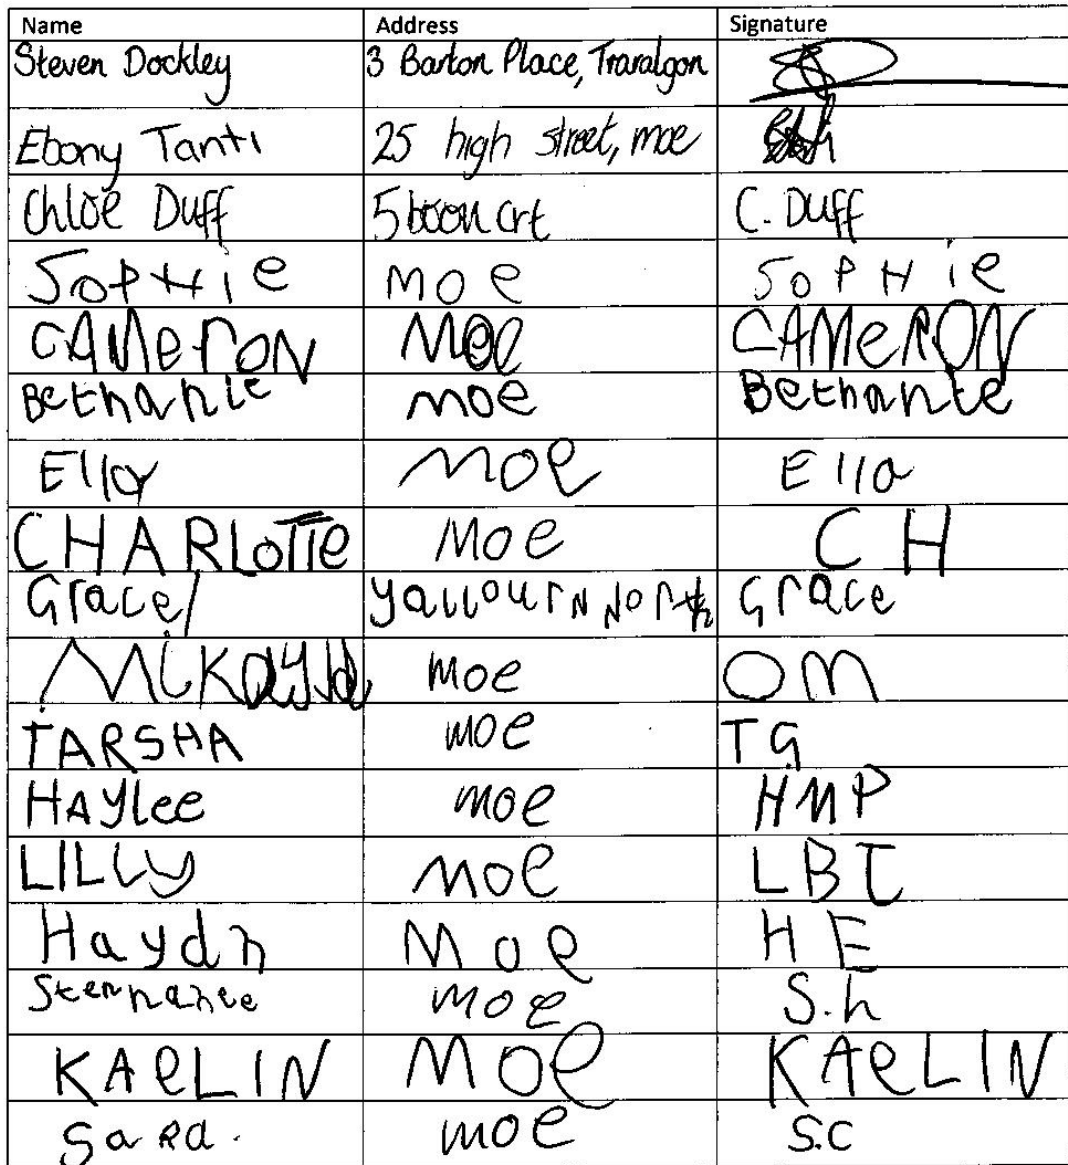 Name Address Signature
Steven Dockley 3 Barton Place, Traralgon
Ebony Tanti 25 high street, moe
Chloe Duff 5 boon crt C. Duff
SoPHie moe SoPHie
CAMeroN Moe CAMeRON
Bethanie moe Bethanie
Ella moe Ella
CHARLoTTe Moe C H
Grace yallourN North Grace
Mikayla moe OM
TARSHA moe TG
HAYlee moe HMP
LILLy moe LBT
Haydn Moe H E
moe S.h
KAeLIN Moe KAeLIN
SaRa. moe S.C